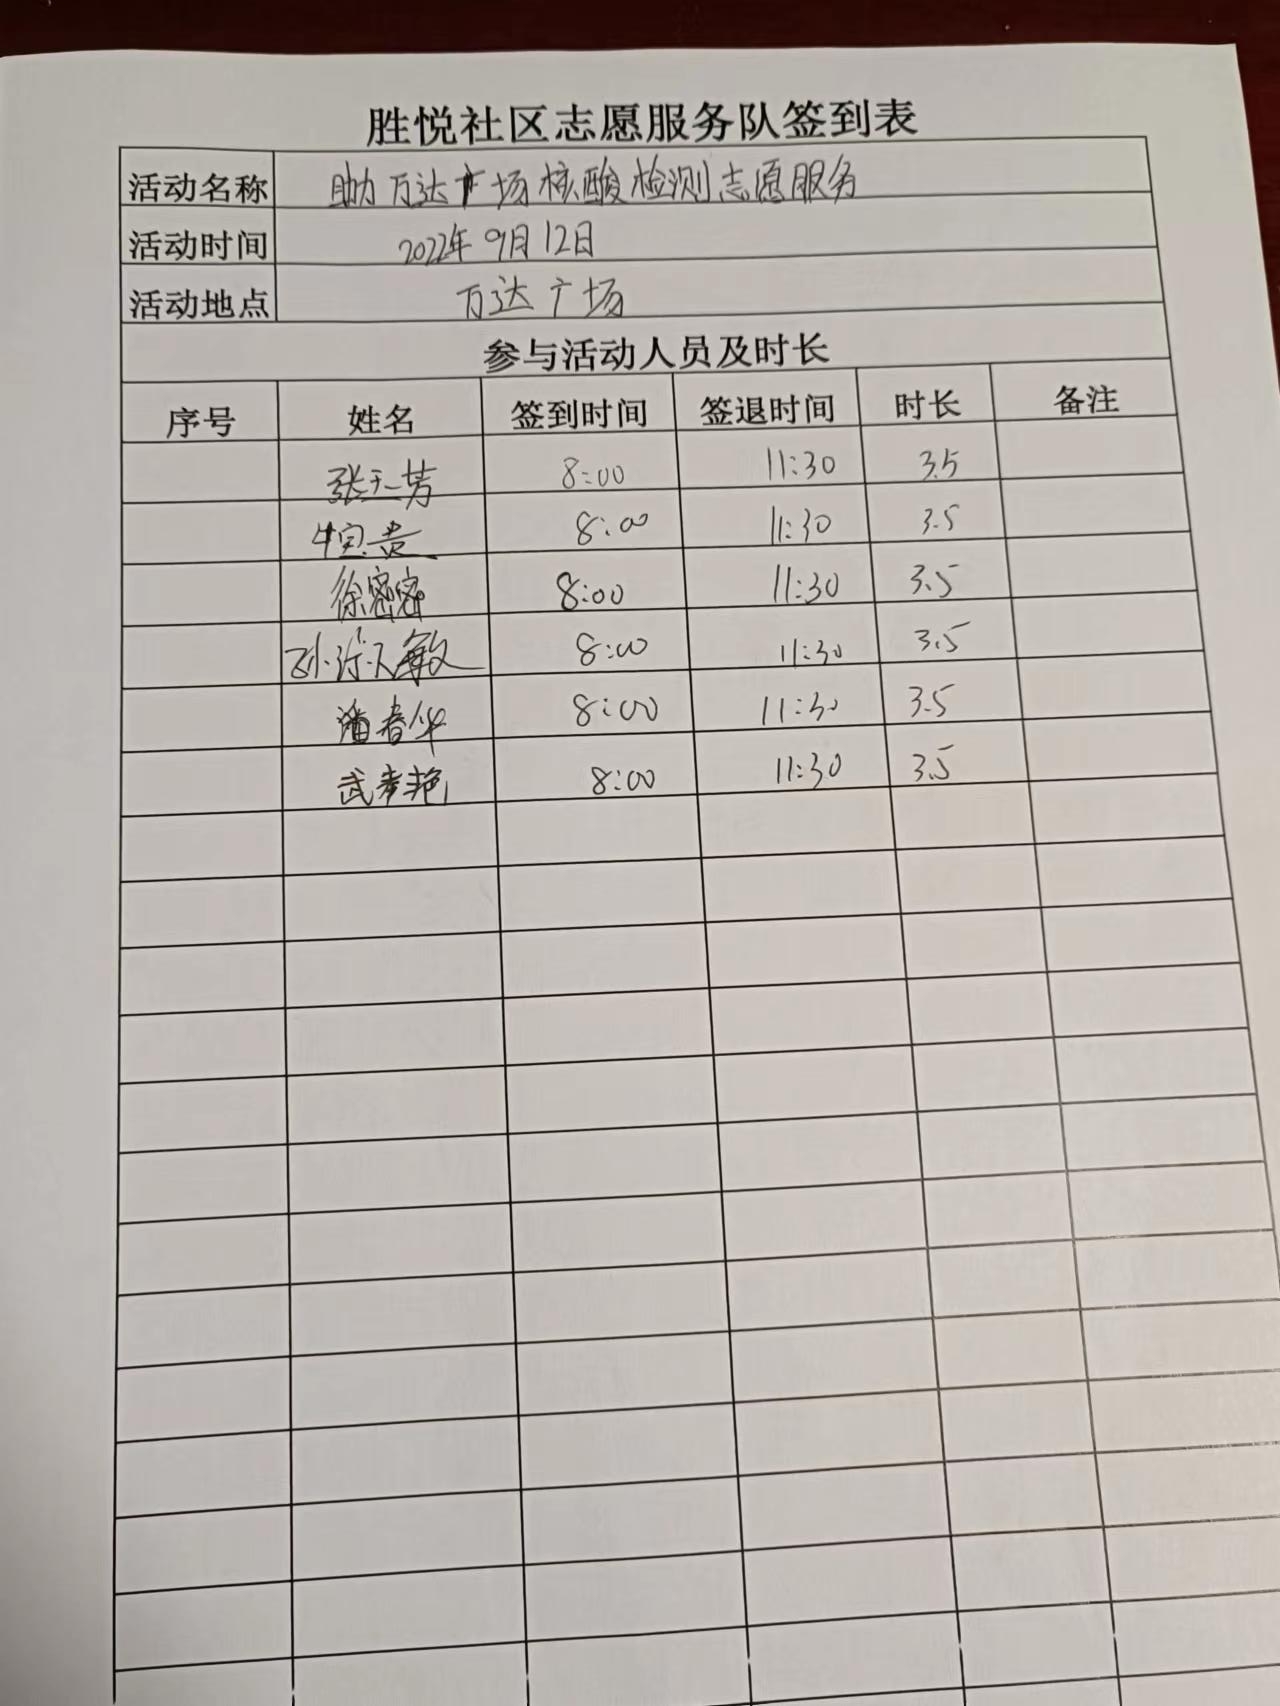 胜悦社区志愿服务队签到表
活动名称 助力万达广场核酸检测志愿服务
活动时间 2022年9月12日
活动地点 万达广场
参与活动人员及时长
序号 姓名 签到时间 签退时间 时长 备注
张天芳 8:00 11:30 3.5
牛宝贵 8:00 11:30 3.5
徐密密 8:00 11:30 3.5
孙 敏 8:00 11:30 3.5
潘春华 8:00 11:30 3.5
武 艳 8:00 11:30 3.5